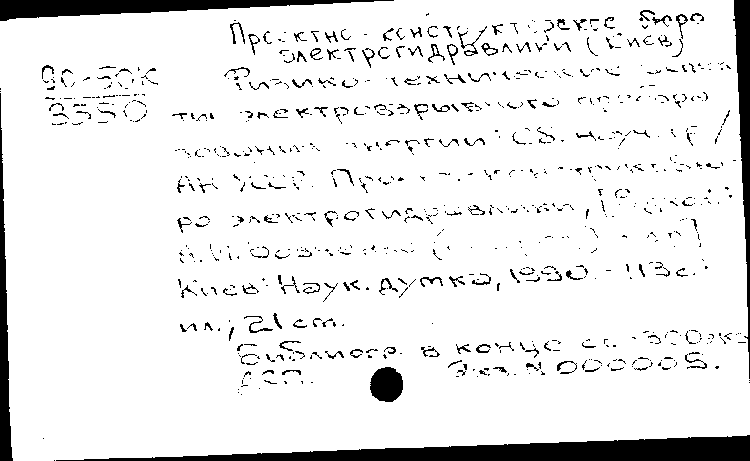 Проектно-конструкторское бюро
электрогидравлики (Киев)
90-50К
3550
Физико-технические аспек
ты электровзрывного преобра
зования энергии: Сб. науч. тр /
АН УССР. Проект.-конструкт. бю-
ро электрогидравлики; [Редкол.:
А.И. Вовченко
Киев: Наук. думка, 1990. - 113 с.:
ил.; 21 cm.
Библиогр. в конце ст. - 300 экз
Экз. N 000005.